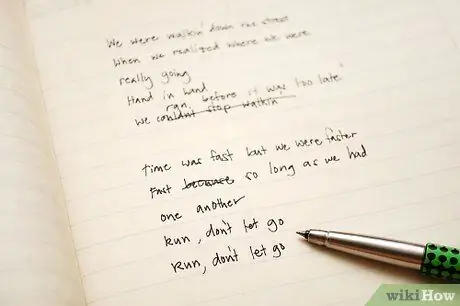 We were walkin' down the street
When we realized where we were
really going
Hand in hand
ran, before it was too late
We couldn't stop walkin
Time was fast but we were faster
Fast because so long as we had
one another
Run, don't let go
Run, don't let go
wikiHow